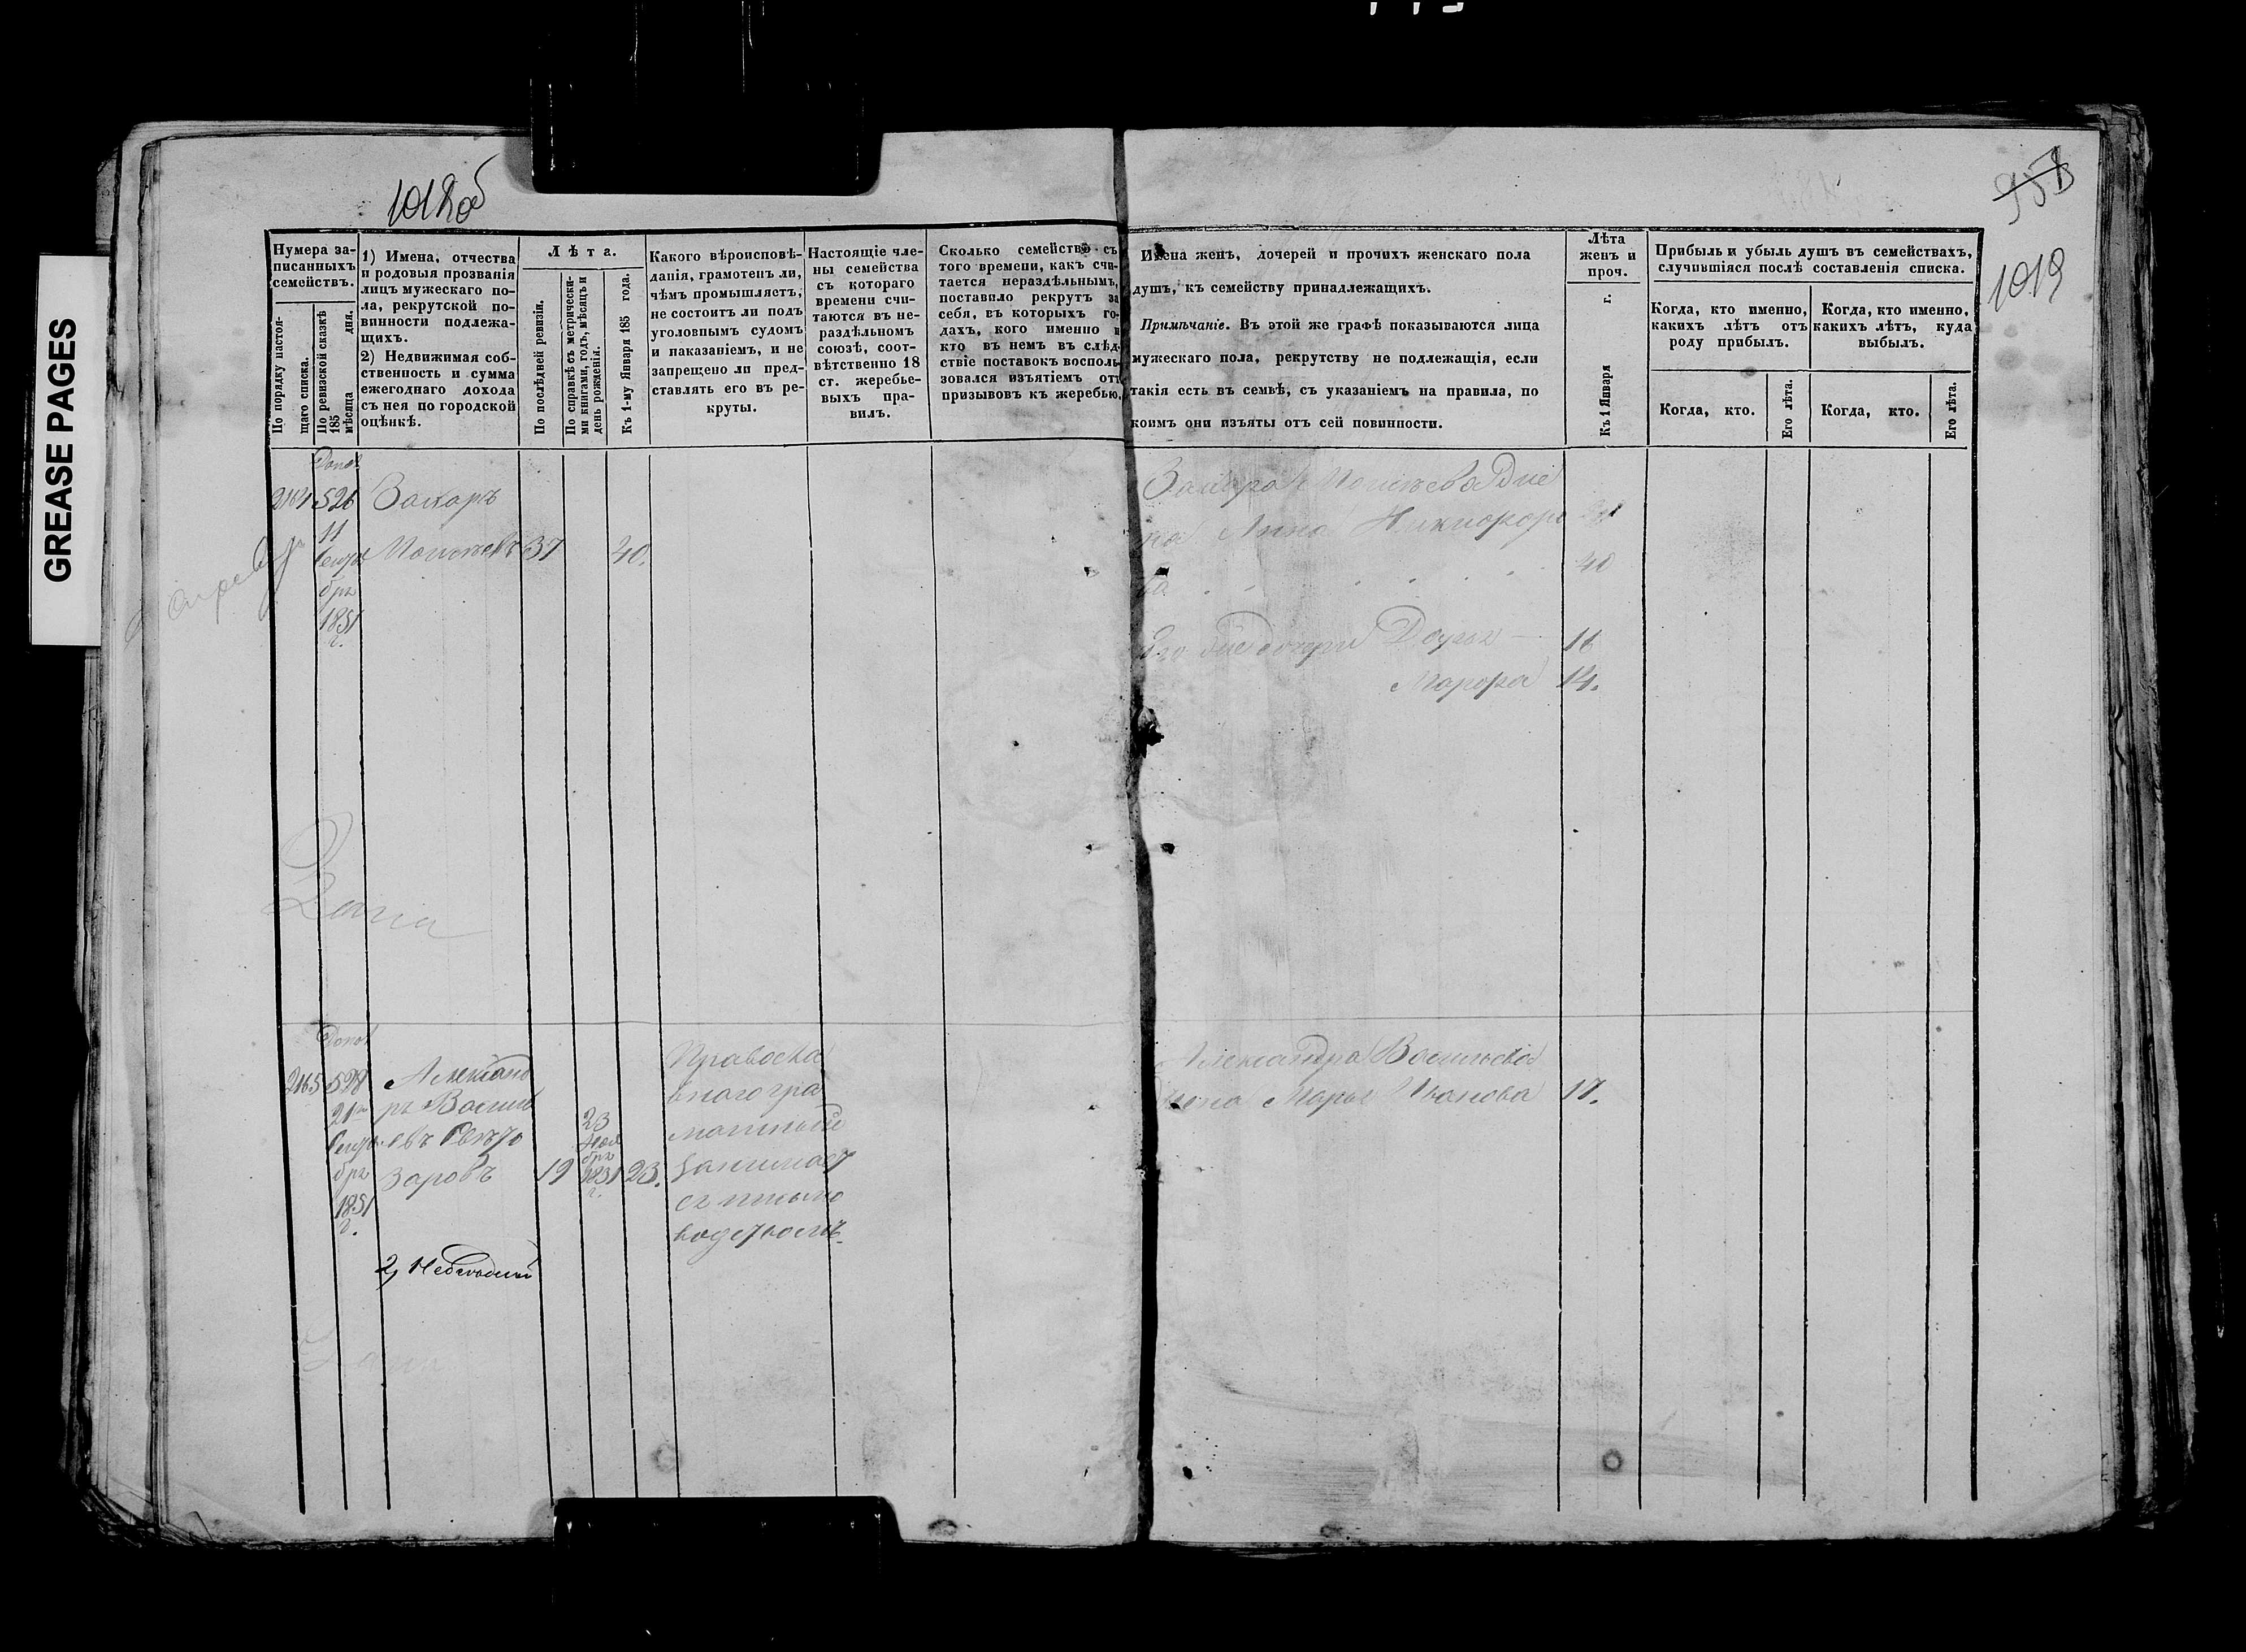 GREASE PAGES
1018об
951
1019
Нумера за-
писанныхъ
семействъ.
По порядку настоя-
щаго списка.
По ревизской сказкѣ
185
мѣсяца дня.
1) Имена, отчества
и родовыя прозванія
лицъ мужескаго по-
ла, рекрутской по-
винности подлежа-
щихъ.
2) Недвижимая соб-
ственность и сумма
ежегоднаго дохода
съ нея по городской
оцѣнкѣ.
Лѣта.
По послѣдней ревизіи.
По справкѣ съ метрически-
ми книгами, годъ, мѣсяцъ и
день рожденія.
Къ 1-му Января 185 года.
Какого вѣроисповѣ-
данія, грамотенъ ли,
чѣмъ промышляетъ,
не состоитъ ли подъ
уголовнымъ судомъ
и наказаніемъ, и не
запрещено ли пред-
ставлять его въ ре-
круты.
Настоящіе чле-
ны семейства
съ котораго
времени счи-
таются въ не-
раздѣльномъ
союзѣ, соот-
вѣтственно 18
ст. жеребье-
выхъ пра-
вилъ.
Сколько семейство съ
того времени, какъ счи-
тается нераздѣльнымъ,
поставило рекрутъ за
себя, въ которыхъ го-
дахъ, кого именно и
кто въ немъ въ слѣд-
ствіе поставокъ восполь-
зовался изъятіемъ отъ
призывовъ къ жеребью.
Имена женъ, дочерей и прочихъ женскаго пола
душъ, къ семейству принадлежащихъ.
Примѣчаніе. Въ этой же графѣ показываются лица
мужескаго пола, рекрутству не подлежащія, если
такія есть въ семьѣ, съ указаніемъ на правила, по
коимъ они изъяты отъ сей повинности.
Лѣта
женъ и
проч.
Къ 1 Января г.
Прибыль и убыль душъ въ семействахъ,
случившіяся послѣ составленія списка.
Когда, кто именно,
какихъ лѣтъ отъ
роду прибылъ.
Когда, кто именно,
какихъ лѣтъ, куда
выбылъ.
Когда, кто.
Его лѣта.
Когда, кто.
Его лѣта.
Допол
526
11
Сентя
бря
1851
г.
Захаръ
Моисеевъ 37 40.
Захара Моисеева
на Анна Никифоро
ва 40
Его дочери Дарья 16
Марфа 14.
Допол
2165 528
21го
Сентя
бря
1851
г.
Александ
ръ Василь
евъ
заровъ 19
23
Ноя
бря
1831
г.
23.
Православ
наго гра
матный
занимает
ся письмо
водствомъ.
Александра Васильева
жена Марья Иванова 17.